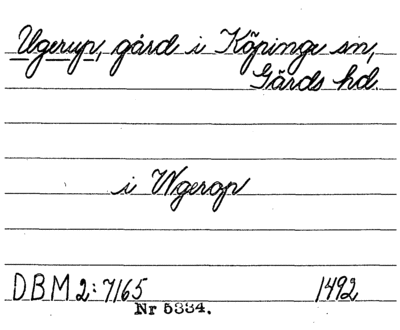 Ugerup, gård i Köpinge sn,
Gärds hd.
i Wgerop
DBM 2:7165 1492
Nr 5334.